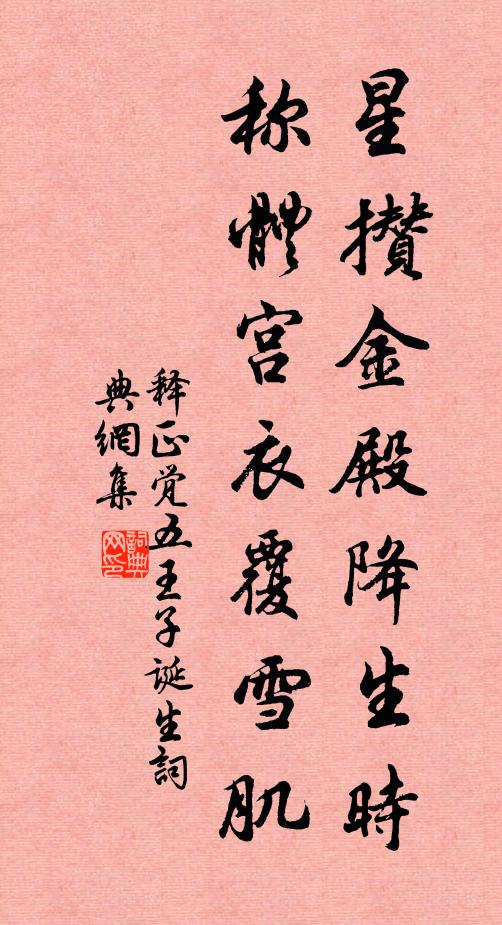 星攢金殿降生時
称體宫衣覆雪肌
释正觉五王子誕生詞
典網集
詞典
网印